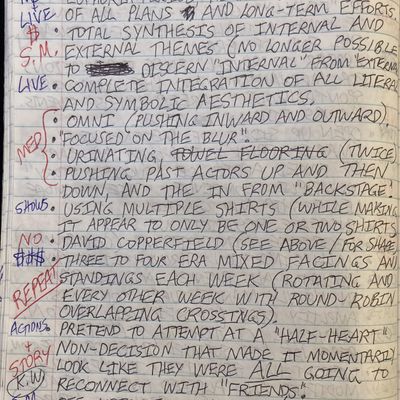 LIVE OF ALL PLANS & AND LONG-TERM EFFORTS.
$ • TOTAL SYNTHESIS OF INTERNAL AND
S.M. EXTERNAL THEMES (NO LONGER POSSIBLE
TO DISCERN "INTERNAL" FROM "EXTERNAL
LIVE • COMPLETE INTEGRATION OF ALL LITERAL
AND SYMBOLIC AESTHETICS.
• OMNI (PUSHING INWARD AND OUTWARD).
MED • "FOCUSED ON THE BLUR".
• URINATING, TOWEL FLOORING (TWICE)
• PUSHING PAST ACTORS UP AND THEN
DOWN, AND THE IN FROM "BACKSTAGE"
SHOWS • USING MULTIPLE SHIRTS (WHILE MAKING
IT APPEAR TO ONLY BE ONE OR TWO SHIRTS
NO • DAVID COPPERFIELD (SEE ABOVE/FOR SHAPE
$$$ • THREE TO FOUR ERA MIXED FACINGS AND
REPEAT STANDINGS EACH WEEK (ROTATING AND
EVERY OTHER WEEK WITH ROUND-ROBIN
OVERLAPPING CROSSINGS).
ACTIONS • PRETEND TO ATTEMPT AT A "HALF-HEART"
+ STORY NON-DECISION THAT MADE IT MOMENTARILY
(K.W) LOOK LIKE THEY WERE ALL GOING TO
RECONNECT WITH "FRIENDS".